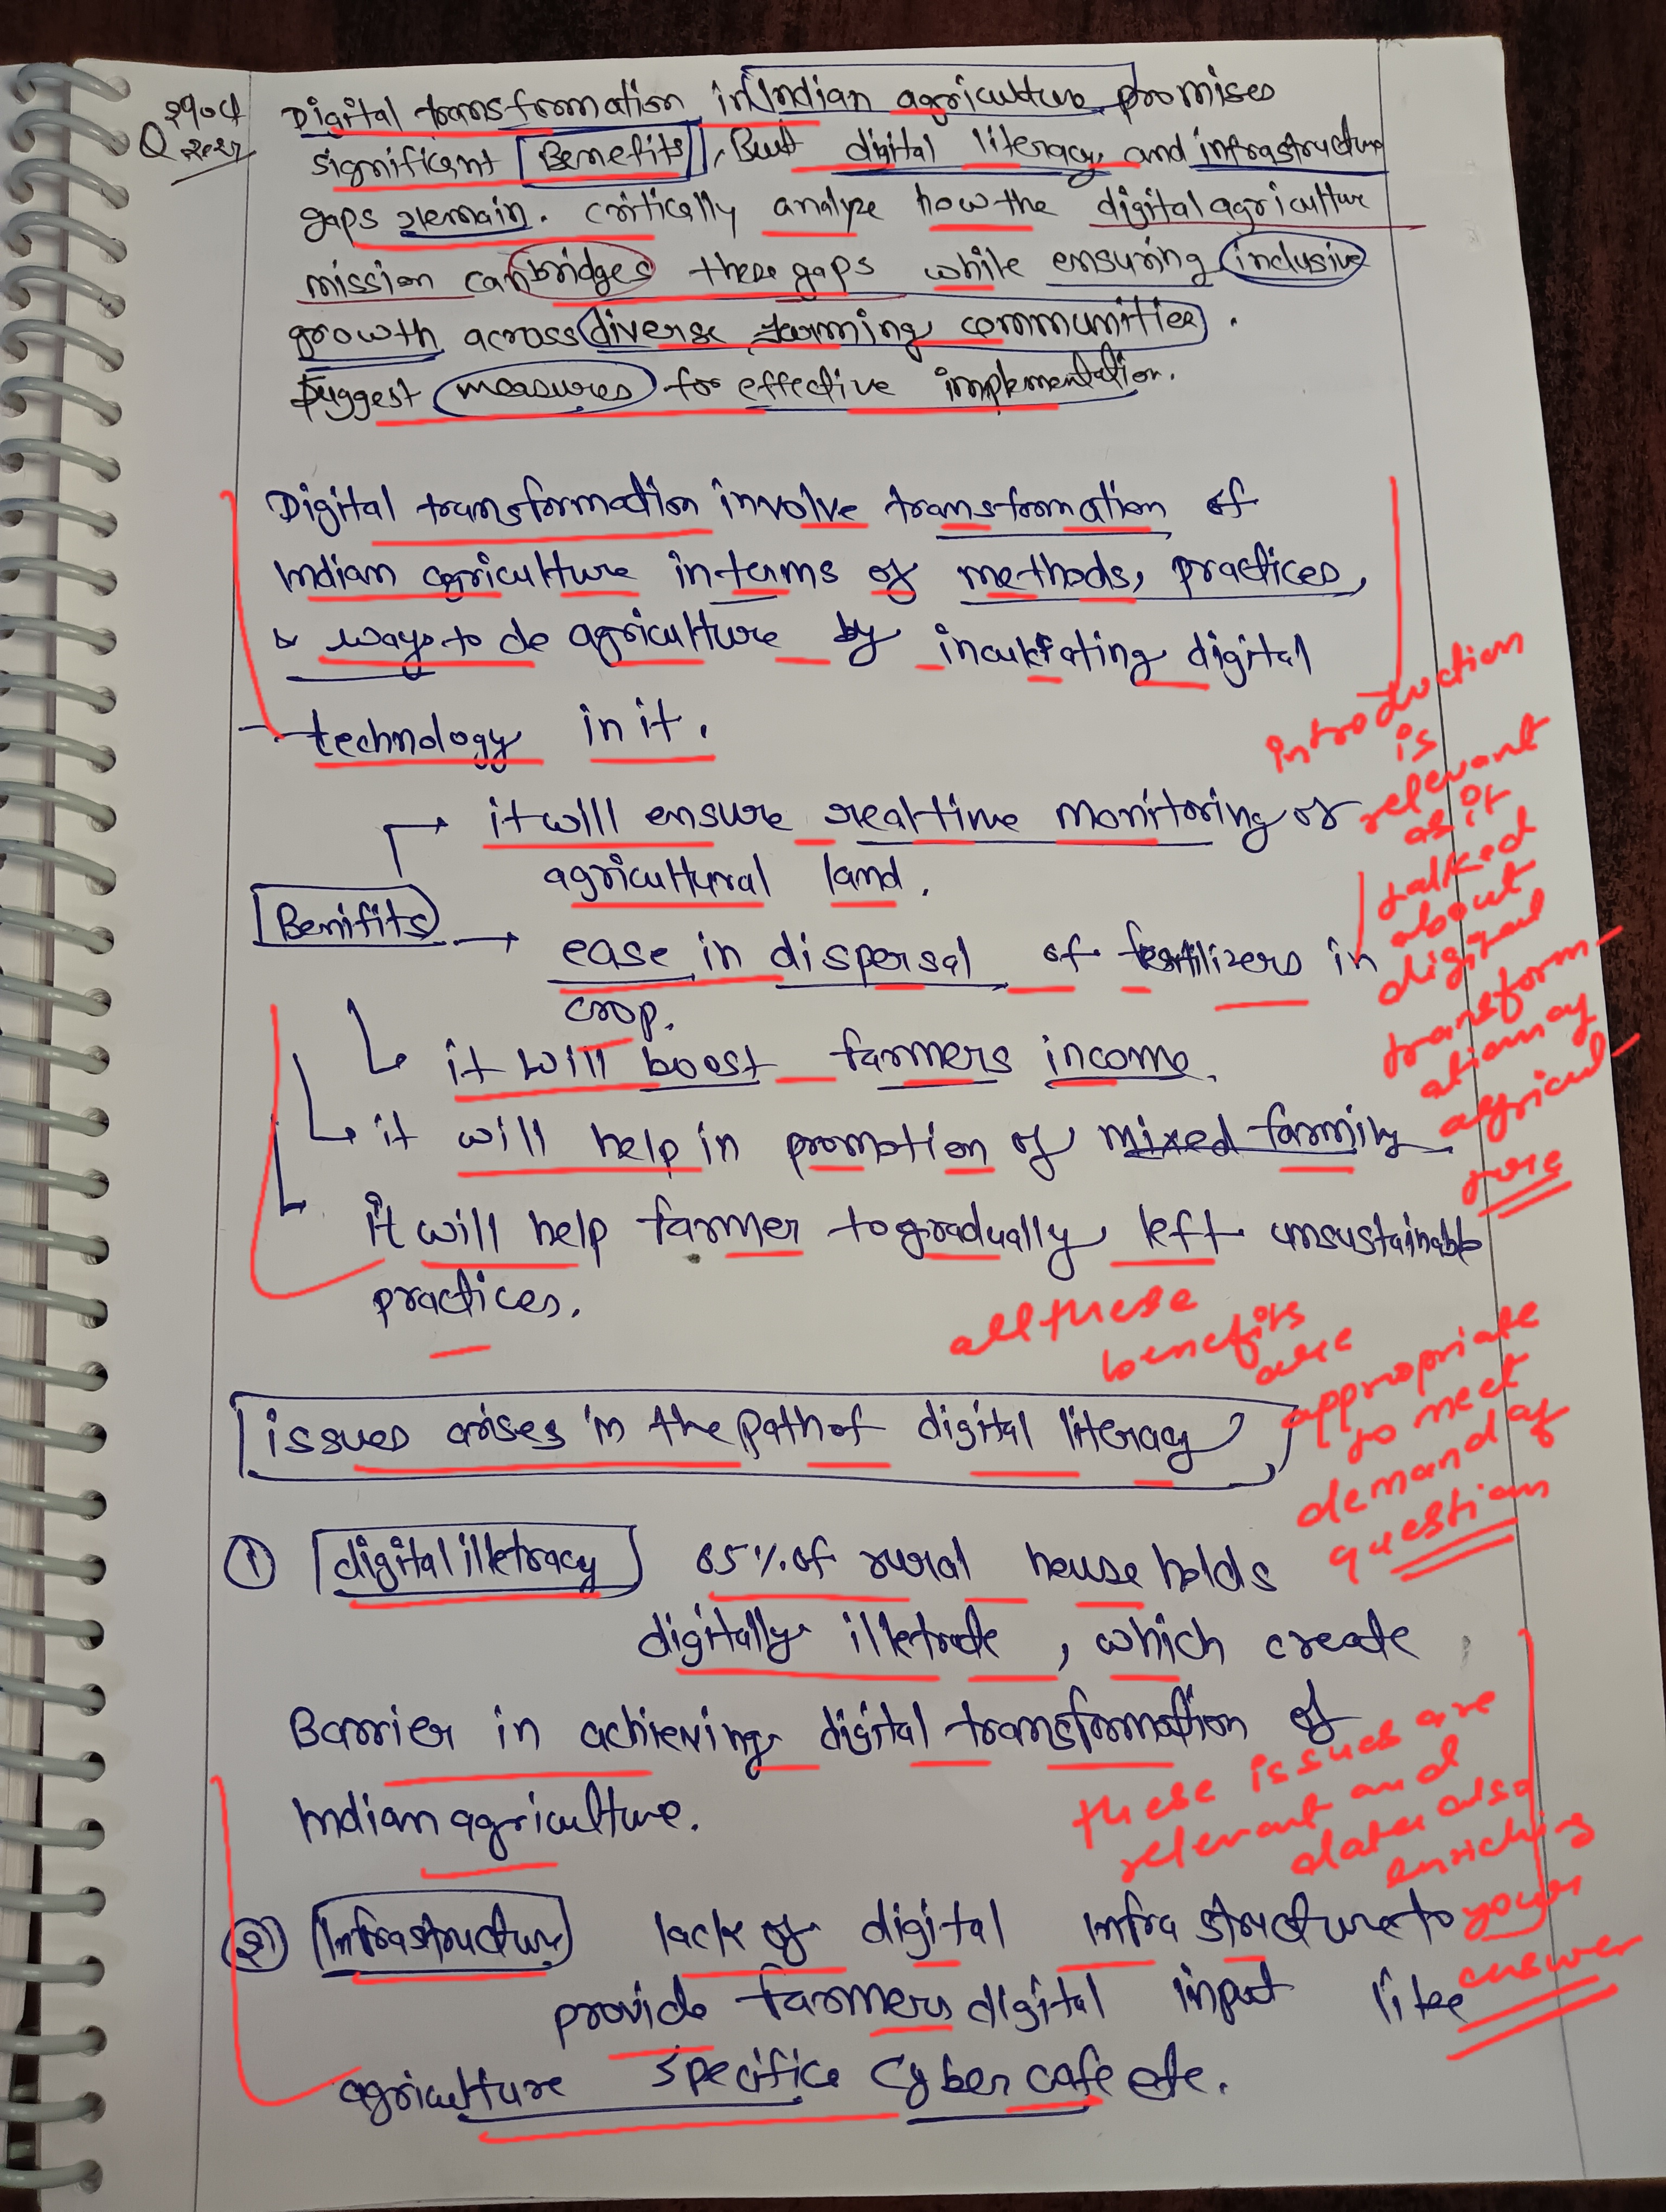 Q
Digital transformation in Indian agriculture promises
significant Benefits, But digital literacy and infrastructure
gaps remain. critically analyze how the digital agriculture
mission can bridges these gaps while ensuring inclusive
growth across diverse farming communities.
suggest measures for effective implementation.
Digital transformation involve transformation of
Indian agriculture in terms of methods, practices,
& ways to do agriculture by inculcating digital
technology in it.
→ it will ensure realtime monitoring of
agricultural land.
Benifits → ease in dispersal of fertilizers in
crop.
it will boost farmers income.
it will help in promotion of mixed farming
it will help farmer to gradually left unsustainable
practices.
introduction
is
relevant
as it
talked
about
digital
transform-
agricul-
ture
all these
benefits
are
appropriate
to meet
demand of
question
issues arises in the path of digital literacy
① digital illetracy 65% of rural households
digitally illetrate, which create
Barrier in achieving digital transformation of
Indian agriculture.
these issues are
relevant and
data also
enriching
your
answer
② Infrastructure lack of digital infrastructure to
provide farmers digital input like
agriculture specifice Cyber cafe etc.